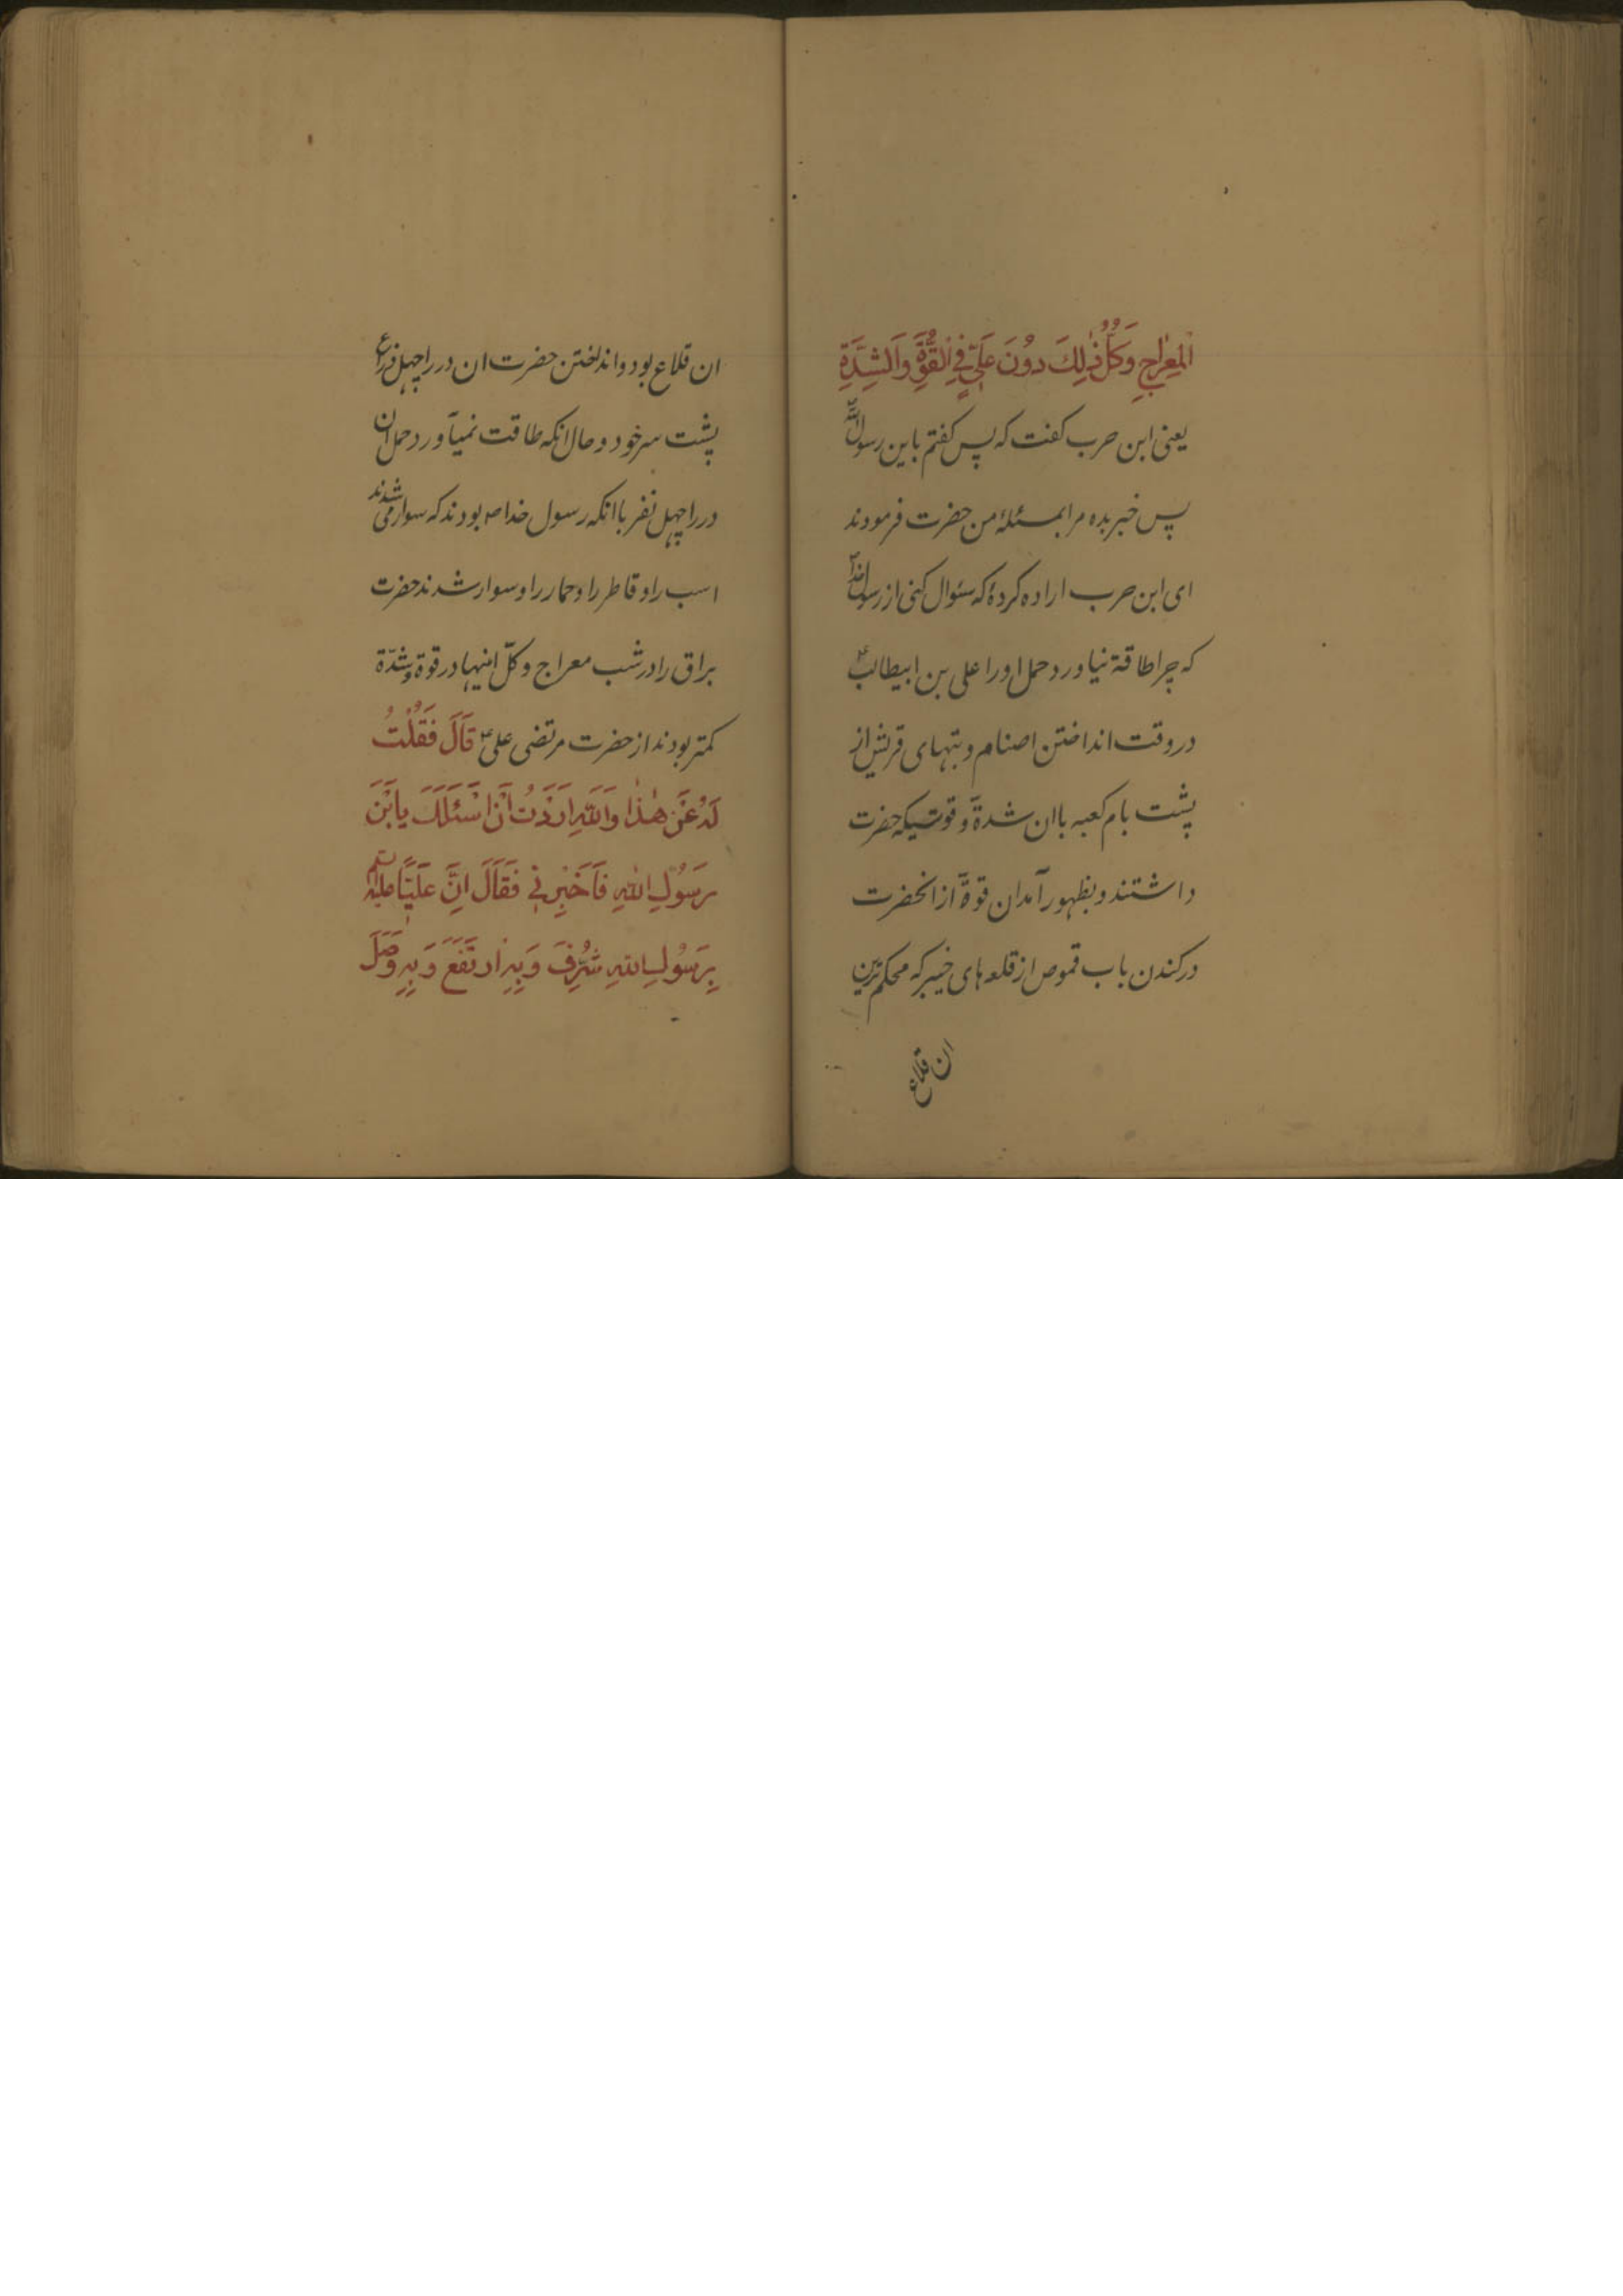 الْمِعْرٰاجِ وَكُلُّ ذٰلِكَ دُونَ عَلِيٍّ فِي الْقُوَّةِ وَالشِّدَّةِ
یعنی ابن حرب کفت که پس کفتم یابن رسول اللّه
پس خبر بده مرا بمسئلۀ من حضرت فرمودند
ای ابن حرب اراده کردۀ که سئوال کنی از رسول خدا
که چرا طاقة نیاورد حمل او را علی بن ابیطالبؑ
در وقت انداختن اصنام و بتهای قریش از
پشت بام کعبه با ان شدة و قوتیکه حضرت
داشتند و بظهور آمدان قوة از انحضرت
در کندن باب قموص از قلعه های خیبر که محکم ترین
ان قلاع
ان قلاع بود و انداختن حضرت ان در را چهل ذراع
پشت سر خود و حال انکه طاقت نمیآورد حمل ان
در را چهل نفر با انکه رسول خدا ص بودند که سوار می شدند
اسب را و قاطر را و حمار را و سوار شدند حضرت
براق را در شب معراج و کلّ اینها در قوة و شدّة
کمتر بودند از حضرت مرتضی علی ع قَالَ فَقُلْتُ
لَهُ عَنْ هٰذٰا وَاللّهِ اَرَدْتُ اَنْ اَسْئَلَكَ يابْنَ
رَسُولِ اللّهِ فَاَخْبِرْنِي فَقَالَ اِنَّ عَلِيّاً عليه
بِرَسُولِ اللّهِ شُرِّفَ وَبِهِ ارْتَفَعَ وَبِهِ وَصَلَ